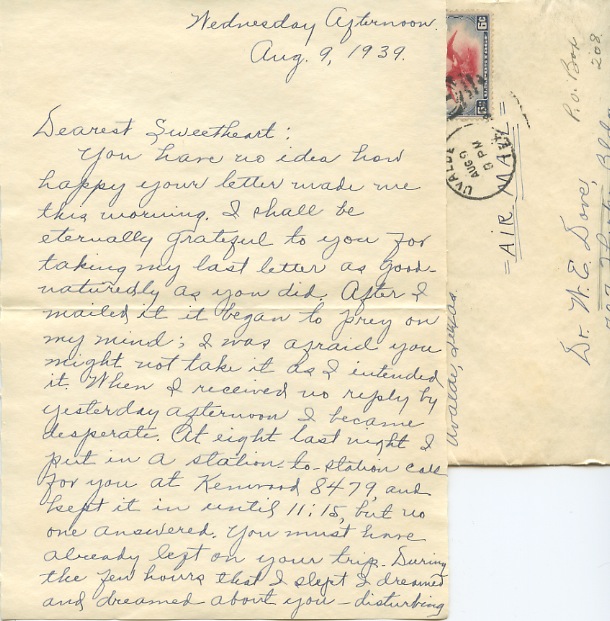 Wednesday Afternoon.
Aug. 9, 1939.
Dearest Sweetheart:
You have no idea how
happy your letter made me
this morning. I shall be
eternally grateful to you for
taking my last letter as good-
naturedly as you did. After I
mailed it it began to prey on
my mind; I was afraid you
might not take it as I intended
it. When I received no reply by
yesterday afternoon I became
desperate. At eight last night I
put in a station-to-station call
for you at Kenwood 8479, and
kept it in until 11:15, but no
one answered. You must have
already left on your trip. During
the few hours that I slept I dreamed
and dreamed about you – disturbing
6¢
6¢
UVALDE
AUG 9
PM
= AIR MAIL =
P.O. Box
208
Dr. W. E. Dove,
Uvalde, Texas.